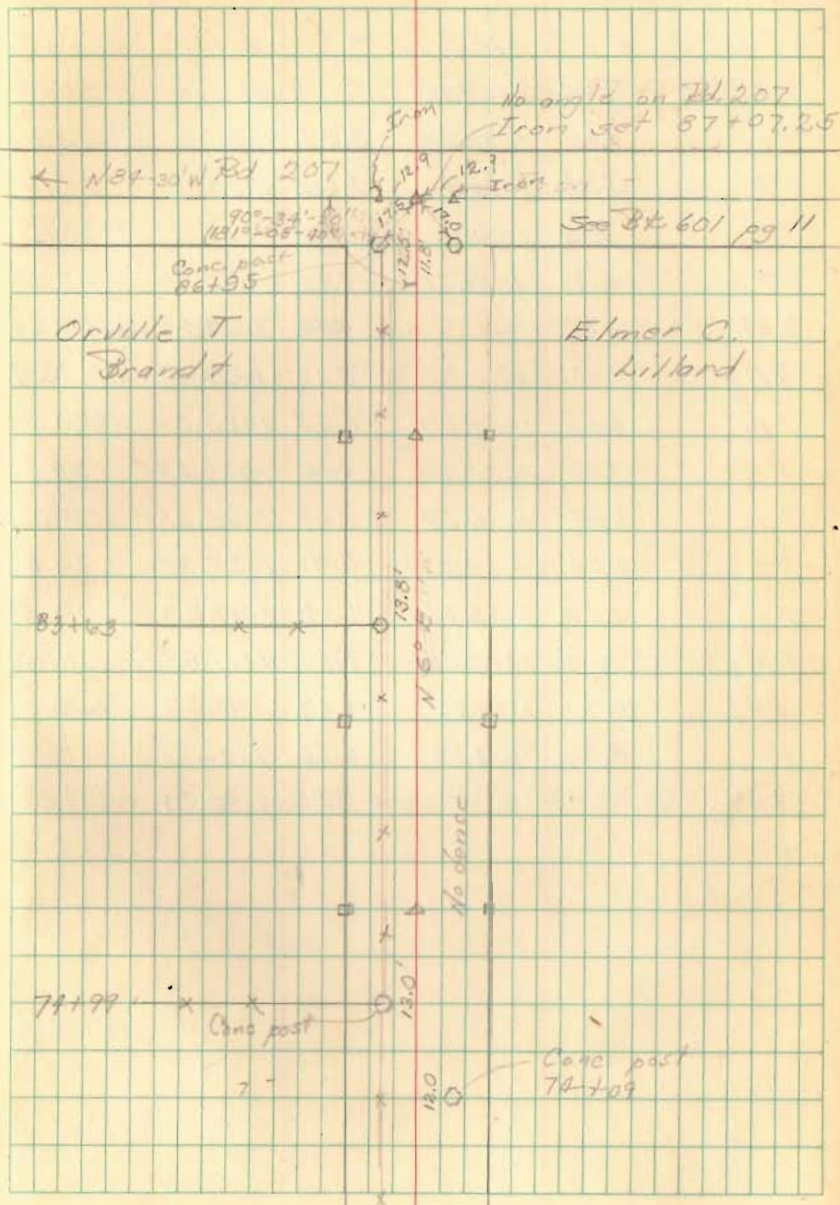 Iron
No angle on Rd. 207
Iron set 87+07.25
← N84-30'W Rd 207
12.9
12.9
Iron
90°-34'
See Bk 601 pg 11
12.5'
11.8'
Conc post
86+95
Orville T
Brandt
Elmer C.
Lillard
83+63
13.8'
N 5° E
No fence
74+99
13.0'
Conc post
12.0
Conc post
74+09